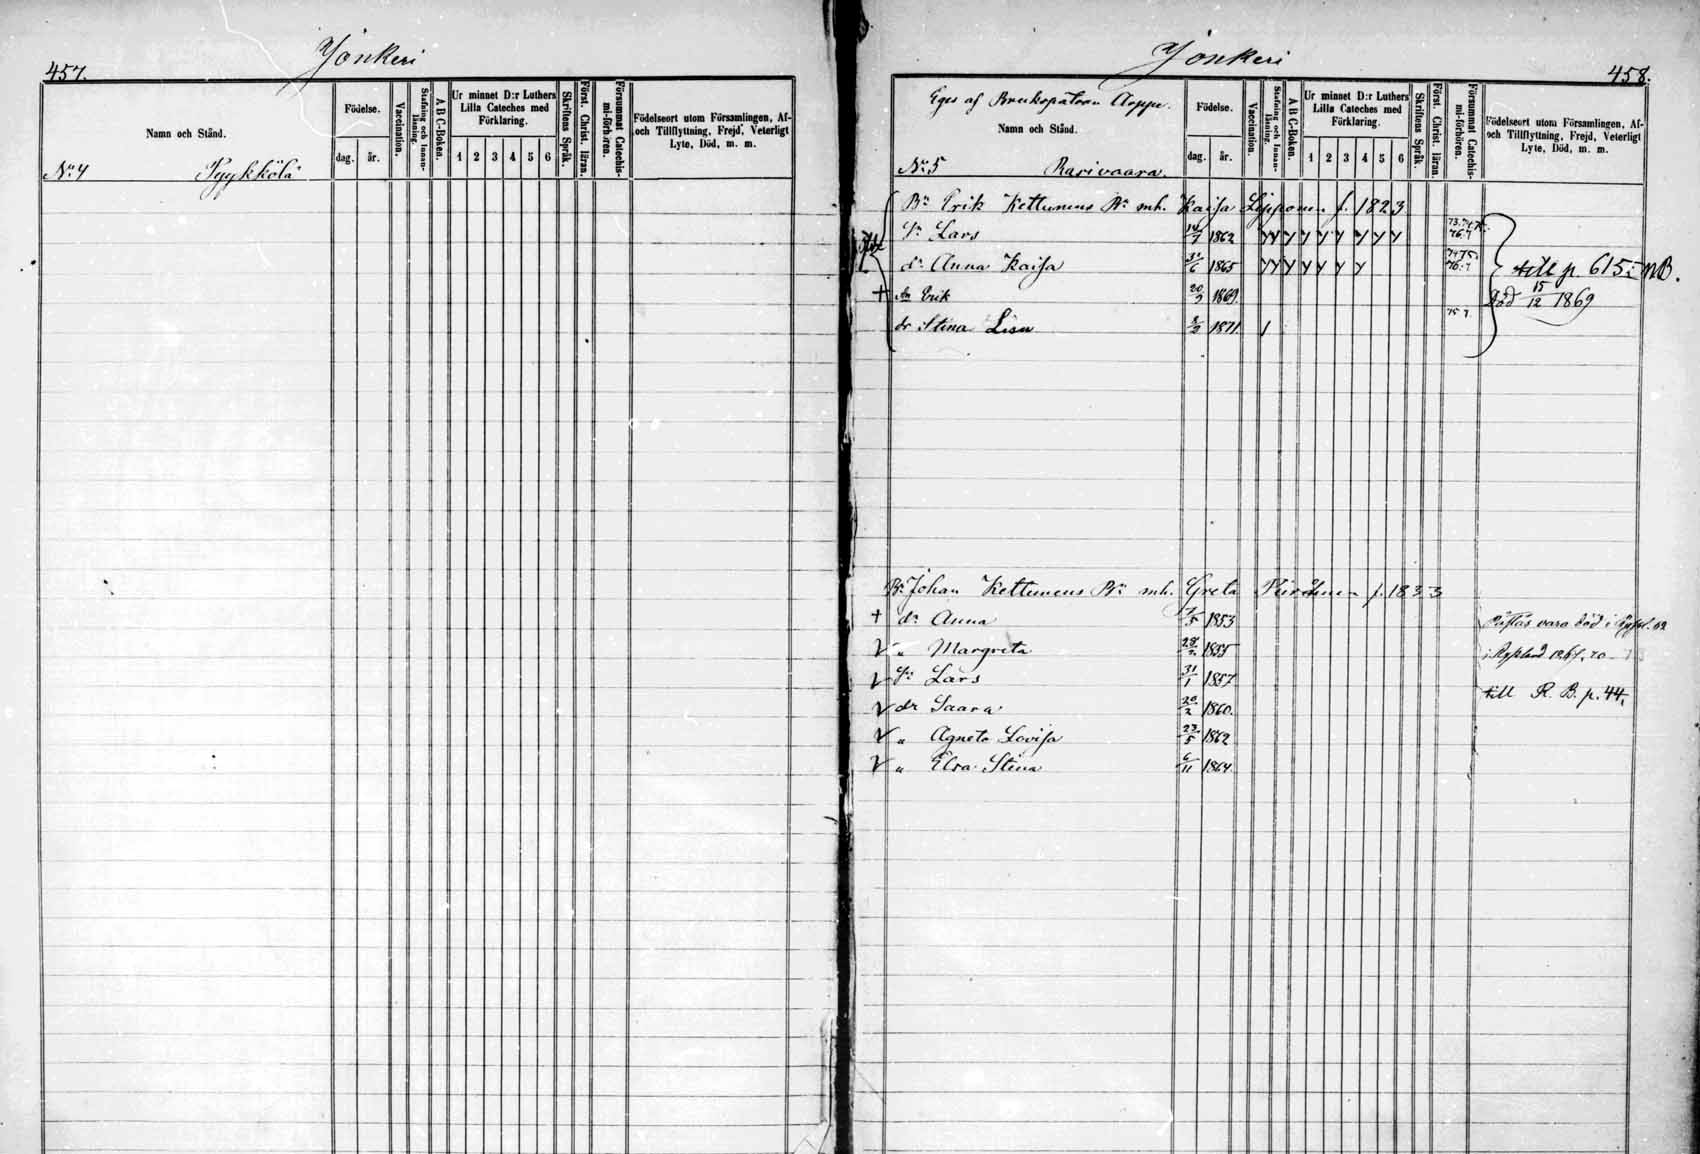 457.
Jonkeri
Namn och Stånd.
Födelse.
dag.
år.
Vaccination.
Stafning och Innanläsning.
A B C-Boken.
Ur minnet D:r Luthers Lilla Cateches med Förklaring.
1 2 3 4 5 6
Skriftens Språk.
Först. Christ. läran.
Försummat Catechismi-förhören.
Födelseort utom Församlingen, Af- och Tillflyttning, Frejd, Veterligt Lyte, Död, m. m.
No 4 Pyykkölä
Jonkeri
458.
Eges af Brukspatron Arppe.
Namn och Stånd.
Födelse.
dag.
år.
Vaccination.
Stafning och Innanläsning.
A B C-Boken.
Ur minnet D:r Luthers Lilla Cateches med Förklaring.
1 2 3 4 5 6
Skriftens Språk.
Först. Christ. läran.
Försummat Catechismi-förhören.
Födelseort utom Församlingen, Af- och Tillflyttning, Frejd, Veterligt Lyte, Död, m. m.
No 5 Rasivaara.
Br Erik Kettunens Br mh. Kaisa Lipponen f. 1823
Sn Lars 1862
dr Anna Kaisa 1865 till p. 615 i N.B.
+ Sn Erik 1869 Död 15/12 1869
dr Stina Lisa 1871
Br Johan Kettunens Br mh. Greta f. 1833
+ dr Anna 7/5 1853
V " Margreta 1855
V Sn Lars 31/1 1857
till R. B. p. 44.
V dr Saara 20/2 1860.
V " Agneta Lovisa 23/5 1862
V " Elsa Stina 6/11 1864